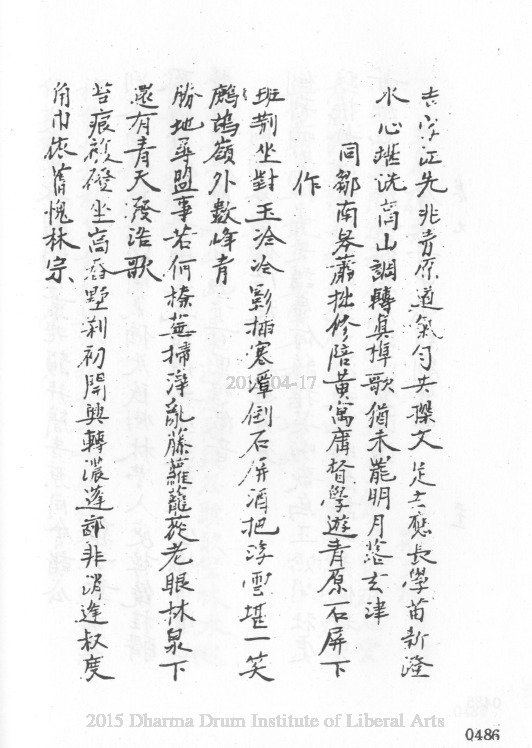 吉字江先非青原道氣勻共探文足士應長學苗新澄
水心堪洗高山調轉真掉歌猶未罷明月落玄津
同鄒南皋蕭拙修陪黃寓庸督學遊青原石屏下
作
班荆坐對玉冷冷影插寒潭倒石屏酒把浮雲堪一笑
鷓鴣嶺外數峰青
勝地尋盟事若何榛蕪掃淨亂藤蘿籠蓯老眼林泉下
還有青天發浩歌
苔痕破磴坐高舂野刹初開興轉濃蓮部非湏逢叔度
角巾依舊愧林宗
2015-04-17
2015 Dharma Drum Institute of Liberal Arts
0486